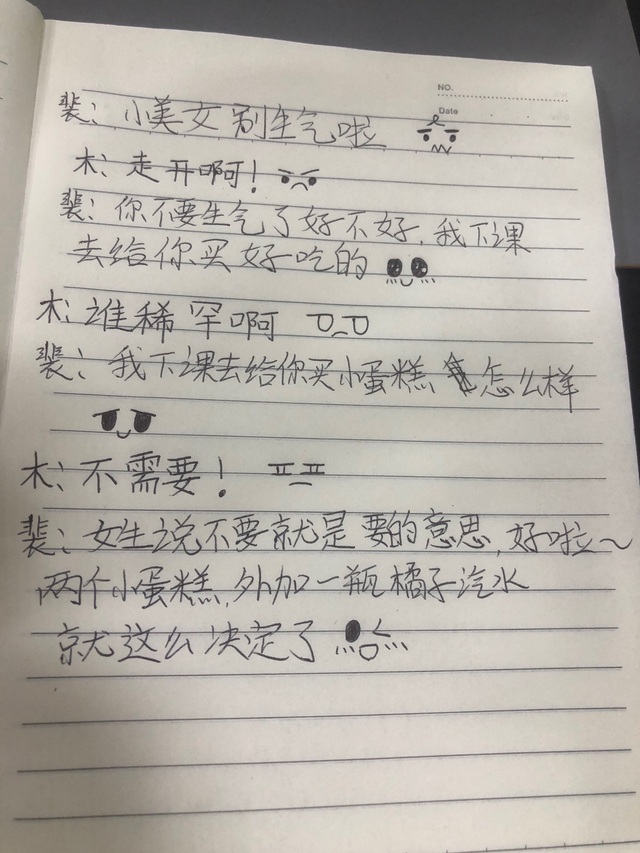 NO.
Date
裴：小美女别生气啦
木：走开啊！
裴：你不要生气了好不好，我下课
去给你买好吃的
木：谁稀罕啊
裴：我下课去给你买小蛋糕，怎么样
木：不需要！
裴：女生说不要就是要的意思，好啦～
两个小蛋糕，外加一瓶橘子汽水
就这么决定了